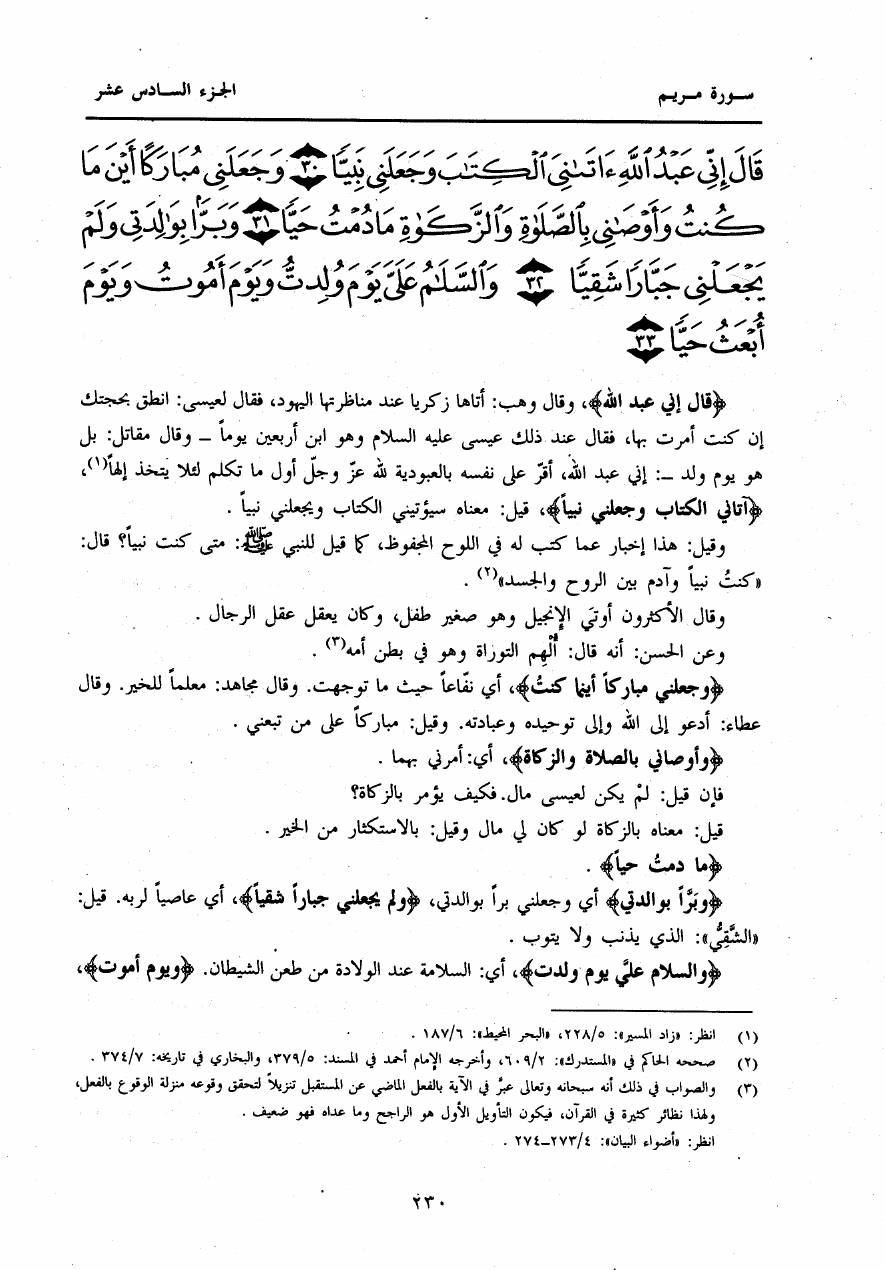 سورة مريم
الجزء السادس عشر
قَالَ إِنِّي عَبْدُ ٱللَّهِ ءَاتَىٰنِيَ ٱلْكِتَٰبَ وَجَعَلَنِي نَبِيًّا ٣٠ وَجَعَلَنِي مُبَارَكًا أَيْنَ مَا
كُنتُ وَأَوْصَٰنِي بِٱلصَّلَوٰةِ وَٱلزَّكَوٰةِ مَا دُمْتُ حَيًّا ٣١ وَبَرًّۢا بِوَٰلِدَتِي وَلَمْ
يَجْعَلْنِي جَبَّارًا شَقِيًّا ٣٢ وَٱلسَّلَٰمُ عَلَيَّ يَوْمَ وُلِدتُّ وَيَوْمَ أَمُوتُ وَيَوْمَ
أُبْعَثُ حَيًّا ٣٣
﴿قال إني عبد الله﴾، وقال وهب: أتاها زكريا عند مناظرتها اليهود، فقال لعيسى: انطق بحجتك
إن كنت أمرت بها، فقال عند ذلك عيسى عليه السلام وهو ابن أربعين يوماً – وقال مقاتل: بل
هو يوم ولد –: إني عبد الله، أقرّ على نفسه بالعبودية لله عزّ وجلّ أول ما تكلم لئلا يتخذ إلهاً(١)،
﴿آتاني الكتاب وجعلني نبياً﴾، قيل: معناه سيؤتيني الكتاب ويجعلني نبياً .
وقيل: هذا إخبار عما كتب له في اللوح المحفوظ، كما قيل للنبي ﷺ: متى كنت نبياً؟ قال:
«كنتُ نبياً وآدم بين الروح والجسد»(٢) .
وقال الأكثرون أوتيَ الإنجيل وهو صغير طفل، وكان يعقل عقل الرجال .
وعن الحسن: أنه قال: أُلْهِم التوراة وهو في بطن أمه(٣) .
﴿وجعلني مباركاً أينما كنتُ﴾، أي نفّاعاً حيث ما توجهت. وقال مجاهد: معلماً للخير. وقال
عطاء: أدعو إلى الله وإلى توحيده وعبادته. وقيل: مباركاً على من تبعني .
﴿وأوصاني بالصلاة والزكاة﴾، أي: أمرني بهما .
فإن قيل: لمْ يكن لعيسى مال. فكيف يؤمر بالزكاة؟
قيل: معناه بالزكاة لو كان لي مال وقيل: بالاستكثار من الخير .
﴿ما دمتُ حياً﴾ .
﴿وبَرَّاً بوالدتي﴾ أي وجعلني براً بوالدتي، ﴿ولم يجعلني جباراً شقياً﴾، أي عاصياً لربه. قيل:
«الشَّقِيُّ»: الذي يذنب ولا يتوب .
﴿والسلام عليَّ يوم ولدت﴾، أي: السلامة عند الولادة من طعن الشيطان. ﴿ويوم أموت﴾،
(١) انظر: «زاد المسير»: ٢٢٨/٥، «البحر المحيط»: ١٨٧/٦ .
(٢) صححه الحاكم في «المستدرك»: ٦٠٩/٢، وأخرجه الإمام أحمد في المسند: ٣٧٩/٥، والبخاري في تاريخه: ٣٧٤/٧ .
(٣) والصواب في ذلك أنه سبحانه وتعالى عبرَّ في الآية بالفعل الماضي عن المستقبل تنزيلاً لتحقق وقوعه منزلة الوقوع بالفعل،
ولهذا نظائر كثيرة في القرآن، فيكون التأويل الأول هو الراجح وما عداه فهو ضعيف .
انظر: «أضواء البيان»: ٢٧٣/٤–٢٧٤ .
٢٣٠